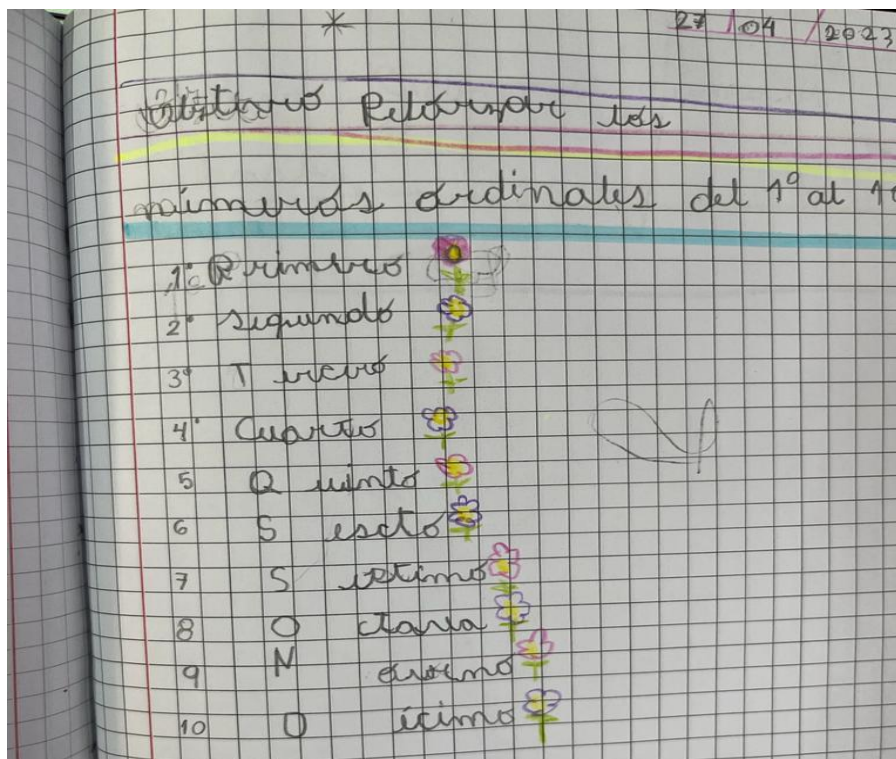 27/04/2023
Objetivo Reforzar los
números ordinales del 1° al 1
1° Primero
2° Segundo
3° Tercero
4° Cuarto
5 Quinto
6 Sescto
7 Setimo
8 Octava
9 Noveno
10 Décimo